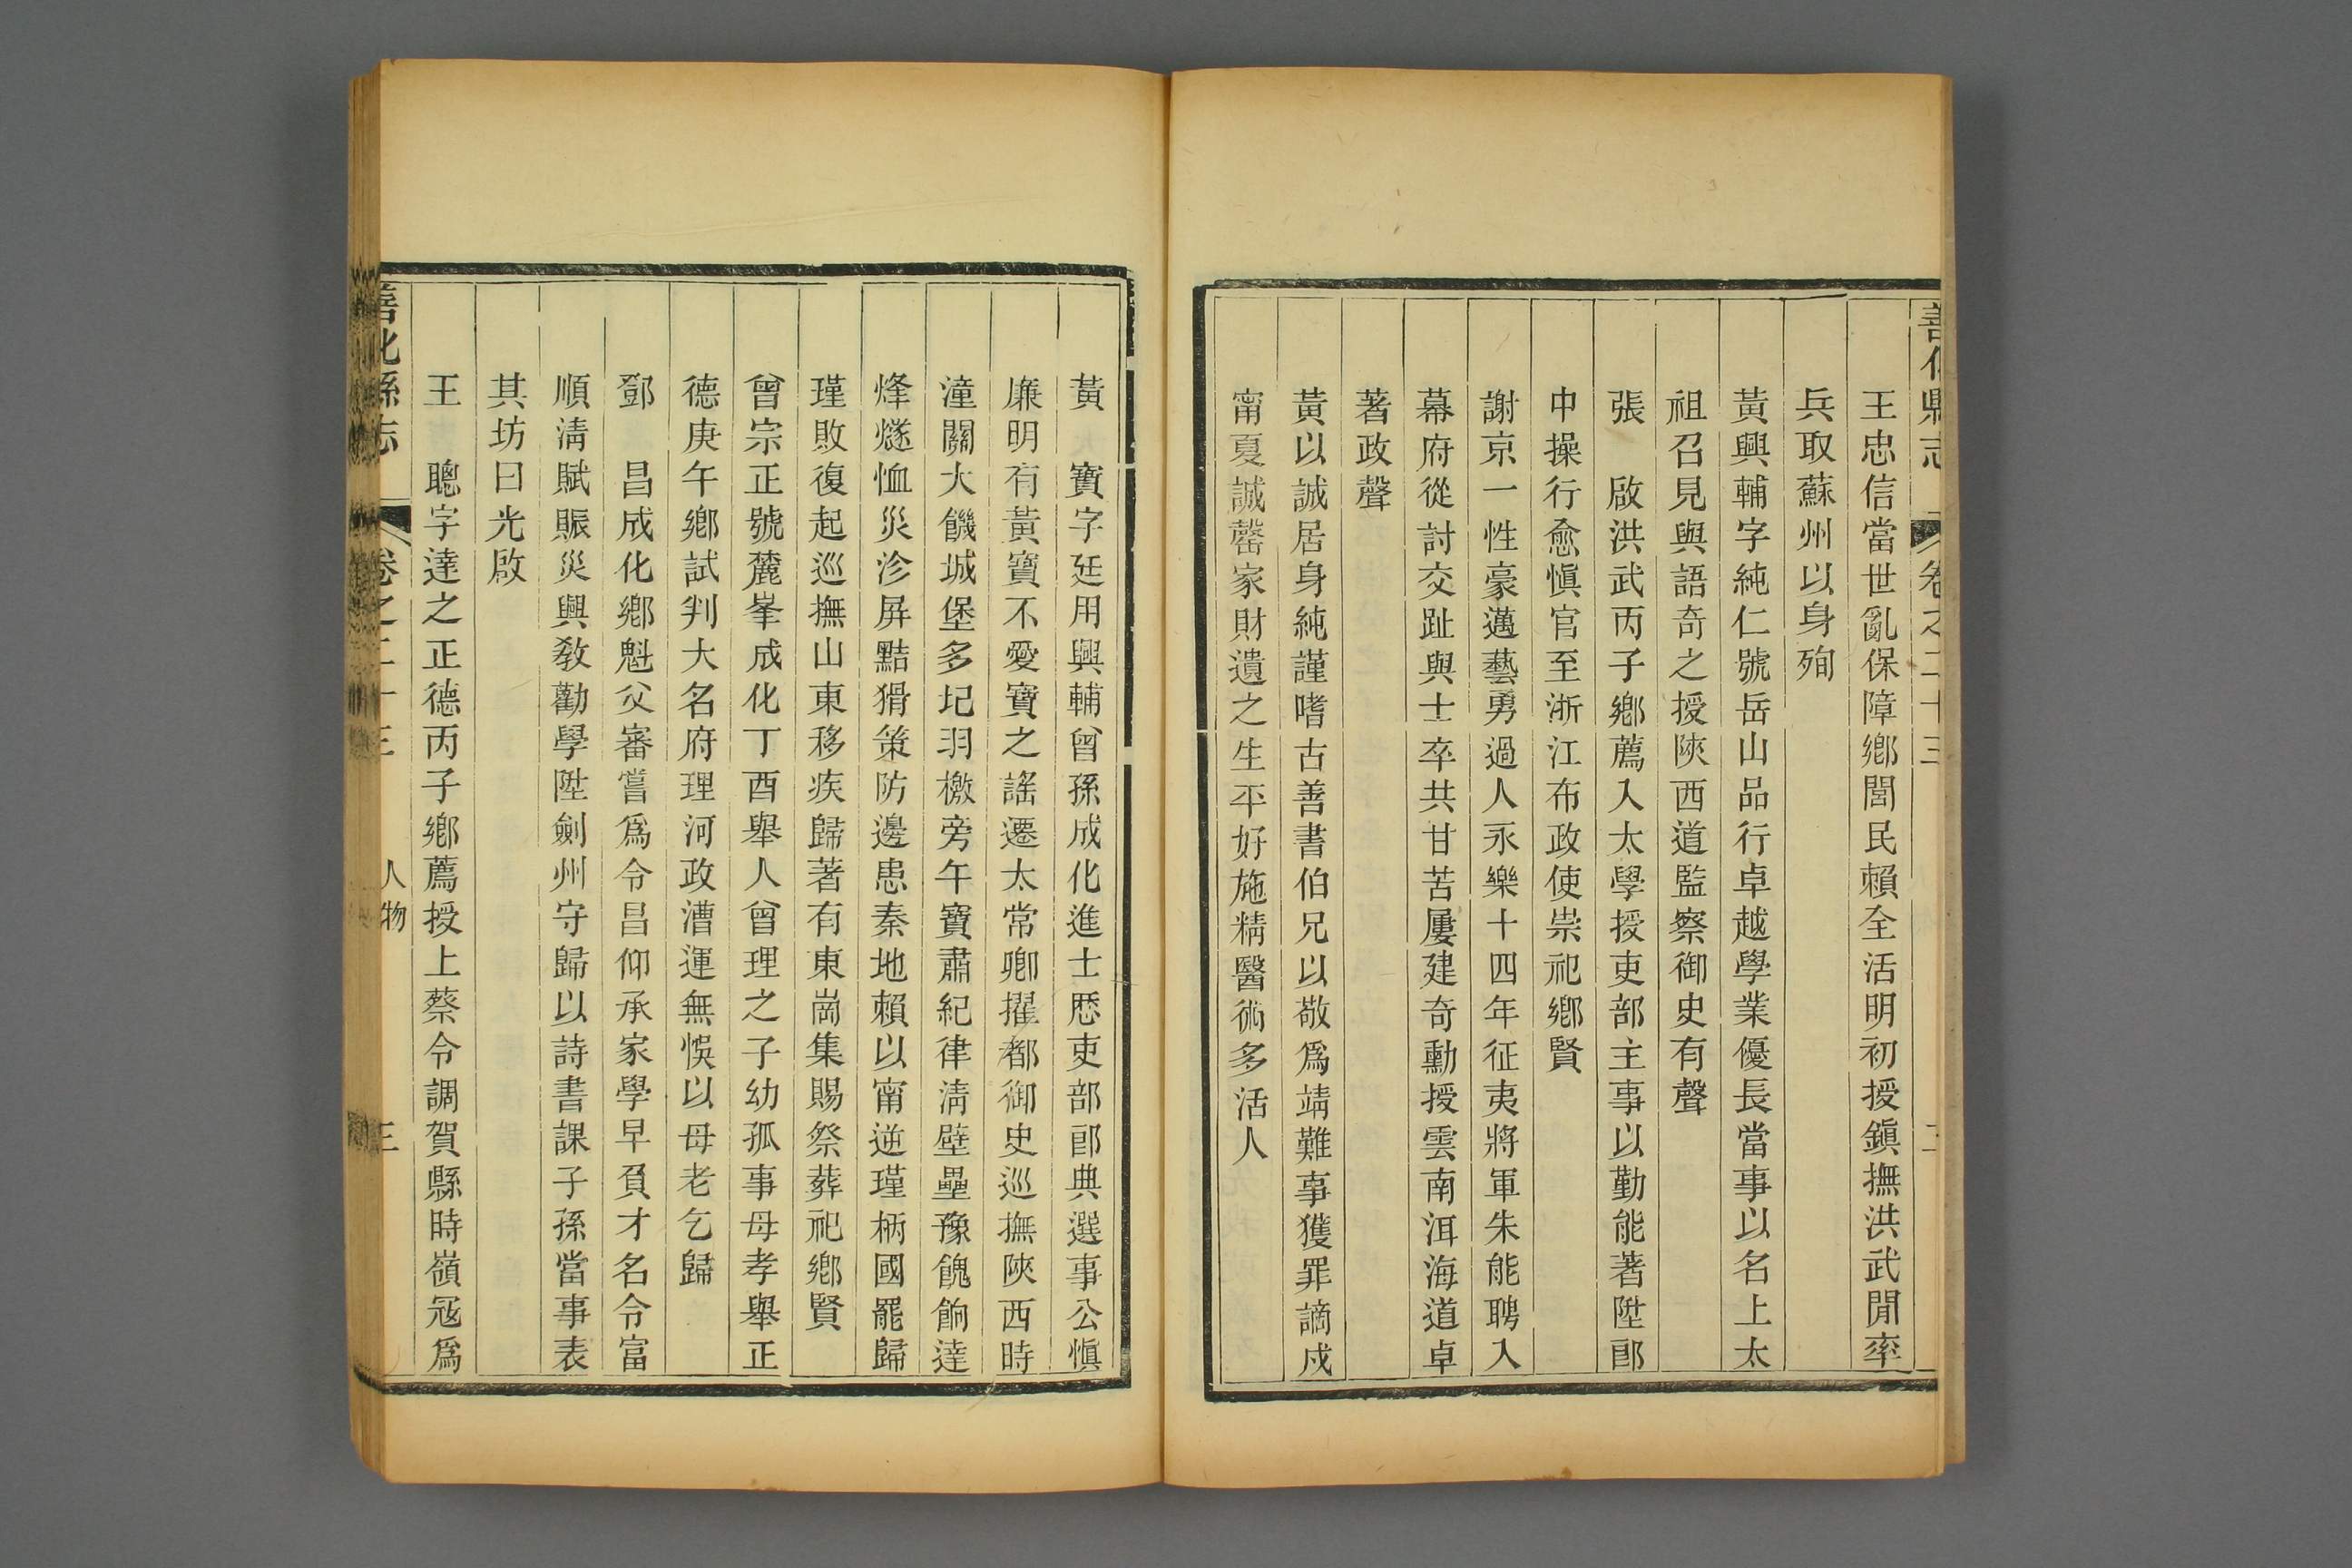 善化縣志
卷之二十三
二
王忠信當世亂保障鄉閭民賴全活明初授鎮撫洪武閒率
兵取蘇州以身殉
黃興輔字純仁號岳山品行卓越學業優長當事以名上太
祖召見與語奇之授陝西道監察御史有聲
張 啟洪武丙子鄉薦入太學授吏部主事以勤能著陞郎
中操行愈慎官至浙江布政使崇祀鄉賢
謝京一性豪邁藝勇過人永樂十四年征夷將軍朱能聘入
幕府從討交趾與士卒共甘苦屢建奇勳授雲南洱海道卓
著政聲
黃以誠居身純謹嗜古善書伯兄以敬爲靖難事獲罪謫戍
甯夏誠罄家財遺之生平好施精醫術多活人
黃 寶字廷用興輔曾孫成化進士歷吏部郎典選事公慎
廉明有黃寶不愛寶之謠遷太常卿擢都御史巡撫陝西時
潼關大饑城堡多圮羽檄旁午寶肅紀律清壁壘豫餽餉達
烽燧恤災沴屏黠猾策防邊患秦地賴以甯逆瑾柄國罷歸
瑾敗復起巡撫山東移疾歸著有東崗集賜祭葬祀鄉賢
曾宗正號麓峯成化丁酉舉人曾理之子幼孤事母孝舉正
德庚午鄉試判大名府理河政漕運無悞以母老乞歸
鄧 昌成化鄉魁父審嘗爲令昌仰承家學早負才名令富
順清賦賑災興教勸學陞劍州守歸以詩書課子孫當事表
其坊曰光啟
王 聰字達之正德丙子鄉薦授上蔡令調賀縣時嶺冦爲
善化縣志
卷之二十三
人物
三